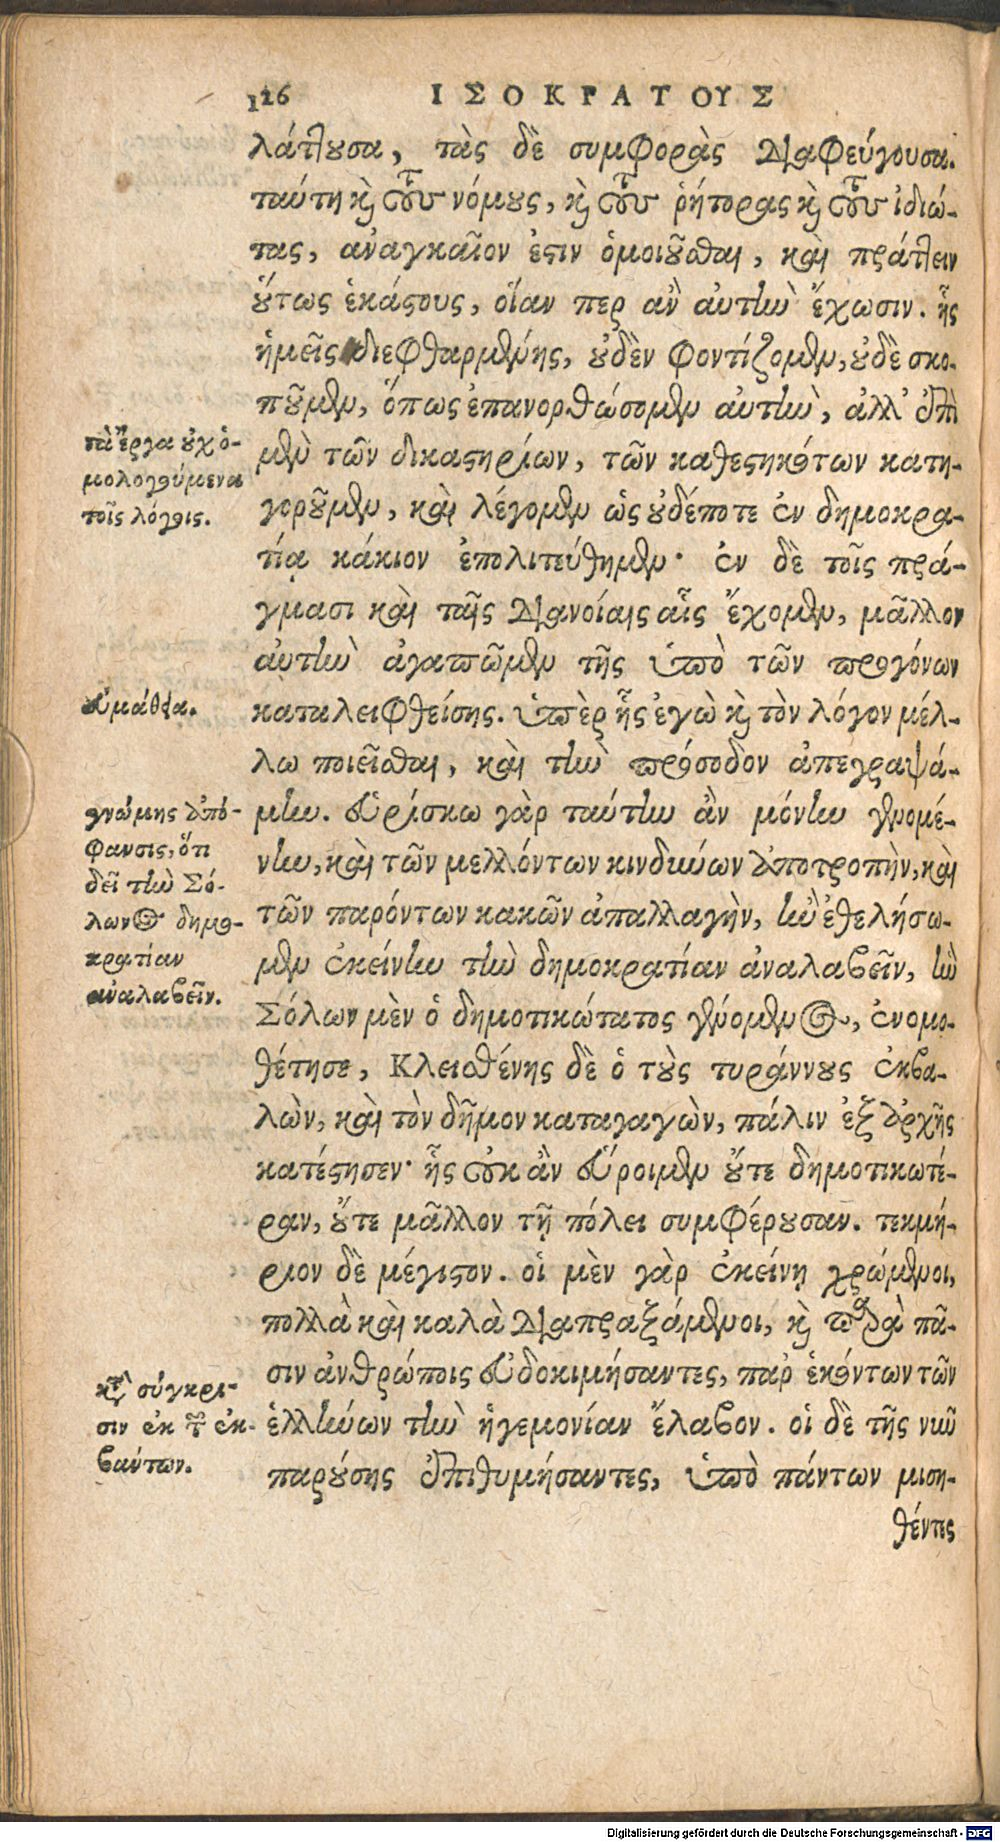 126 ΙΣΟΚΡΑΤΟΥΣ
λάττουσα, τὰς δὲ συμφορὰς διαφεύγουσα.
ταύτῃ καὶ τοὺς νόμους, καὶ τοὺς ῥήτορας καὶ τοὺς ἰδιώ-
τας, ἀναγκαῖόν ἐστιν ὁμοιοῦσθαι, καὶ πράττειν
οὕτως ἑκάστους, οἵαν περ ἂν αὐτὴν ἔχωσιν. ἧς
ἡμεῖς διεφθαρμένης, οὐδὲν φοντίζομεν, οὐδὲ σκο-
ποῦμεν, ὅπως ἐπανορθώσομεν αὐτὴν, ἀλλ' ἐπὶ
μὲν τῶν δικαστηρίων, τῶν καθεστηκότων κατη-
γοροῦμεν, καὶ λέγομεν ὡς οὐδέποτε ἐν δημοκρα-
τίᾳ κάκιον ἐπολιτεύθημεν· ἐν δὲ τοῖς πρά-
γμασι καὶ ταῖς διανοίαις αἷς ἔχομεν, μᾶλλον
αὐτὴν ἀγαπῶμεν τῆς ὑπὸ τῶν προγόνων
καταλειφθείσης. ὑπὲρ ἧς ἐγὼ καὶ τὸν λόγον μέλ-
λω ποιεῖσθαι, καὶ τὴν πρόσοδον ἀπεγραψά-
μην. εὑρίσκω γὰρ ταύτην ἂν μόνην γενομέ-
νην, καὶ τῶν μελλόντων κινδύνων ἀποτροπὴν, καὶ
τῶν παρόντων κακῶν ἀπαλλαγὴν, ἢν ἐθελήσω-
μεν ἐκείνην τὴν δημοκρατίαν ἀναλαβεῖν, ἣν
Σόλων μὲν ὁ δημοτικώτατος γενόμενος, ἐνομο-
θέτησε, Κλεισθένης δὲ ὁ τοὺς τυράννους ἐκβα-
λὼν, καὶ τὸν δῆμον καταγαγὼν, πάλιν ἐξ ἀρχῆς
κατέστησεν· ἧς οὐκ ἂν εὕροιμεν οὔτε δημοτικωτέ-
ραν, οὔτε μᾶλλον τῇ πόλει συμφέρουσαν. τεκμή-
ριον δὲ μέγιστον. οἱ μὲν γὰρ ἐκείνῃ χρώμενοι,
πολλὰ καὶ καλὰ διαπραξάμενοι, καὶ παρὰ πᾶ-
σιν ἀνθρώποις εὐδοκιμήσαντες, παρ' ἑκόντων τῶν
ἑλλήνων τὴν ἡγεμονίαν ἔλαβον. οἱ δὲ τῆς νῦν
παρούσης ἐπιθυμήσαντες, ὑπὸ πάντων μιση-
θέντες
τὰ ἔργα οὐχ ὁ-
μολογούμενα
τοῖς λόγοις.
εὐμάθεια.
γνώμης ἀπό-
φανσις, ὅτι
δεῖ τὴν Σό-
λωνος δημο-
κρατίαν
ἀναλαβεῖν.
κατὰ σύγκρι-
σιν ἐκ τῶν ἐκ-
βάντων.
Digitalisierung gefördert durch die Deutsche Forschungsgemeinschaft - DFG